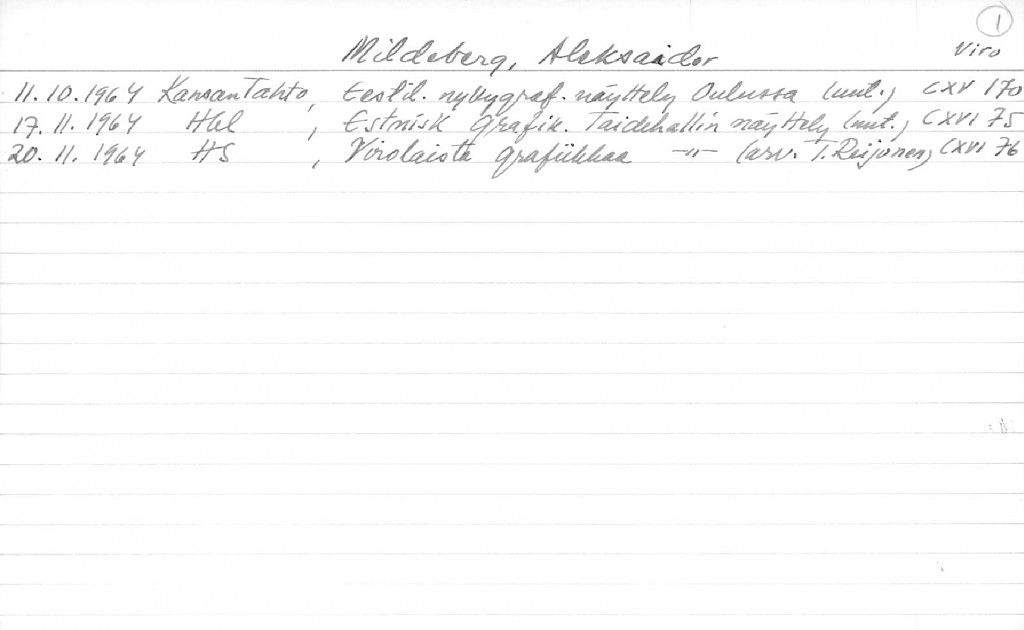 1
Mildeberg, Aleksander
Viro
11.10.1964 Kansan Tahto, Eestil. nykygraf. näyttely Oulussa (uut.) CXV 170
17.11.1964 Hbl, Estnisk grafik. Taidehallin näyttely (uut.) CXVI 75
20.11.1964 HS, Virolaista grafiikkaa -"- (arv. T. Reijonen) CXVI 76